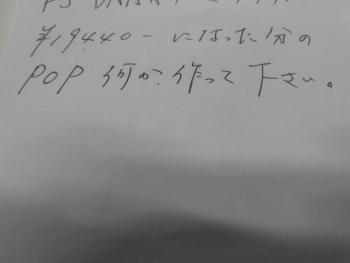 ¥19440-になった分の
POP何か作って下さい。